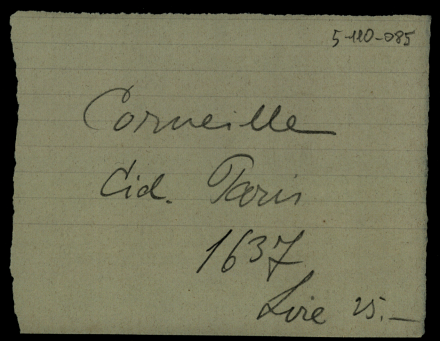 5-110-085
Corneille
Cid. Paris
1637
Lire 25.—